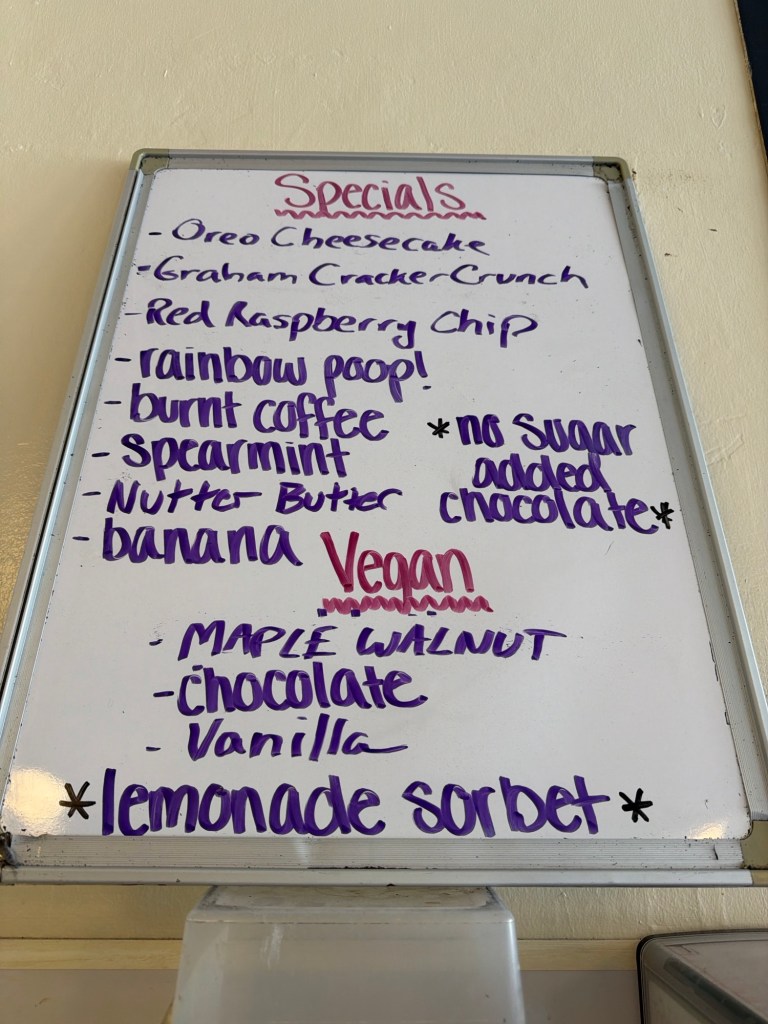 Specials
- Oreo Cheesecake
- Graham Cracker Crunch
- Red Raspberry Chip
- rainbow poop!
- burnt coffee
- spearmint
- Nutter Butter
- banana
*no sugar
added
chocolate*
Vegan
- MAPLE WALNUT
- chocolate
- Vanilla
*lemonade sorbet*